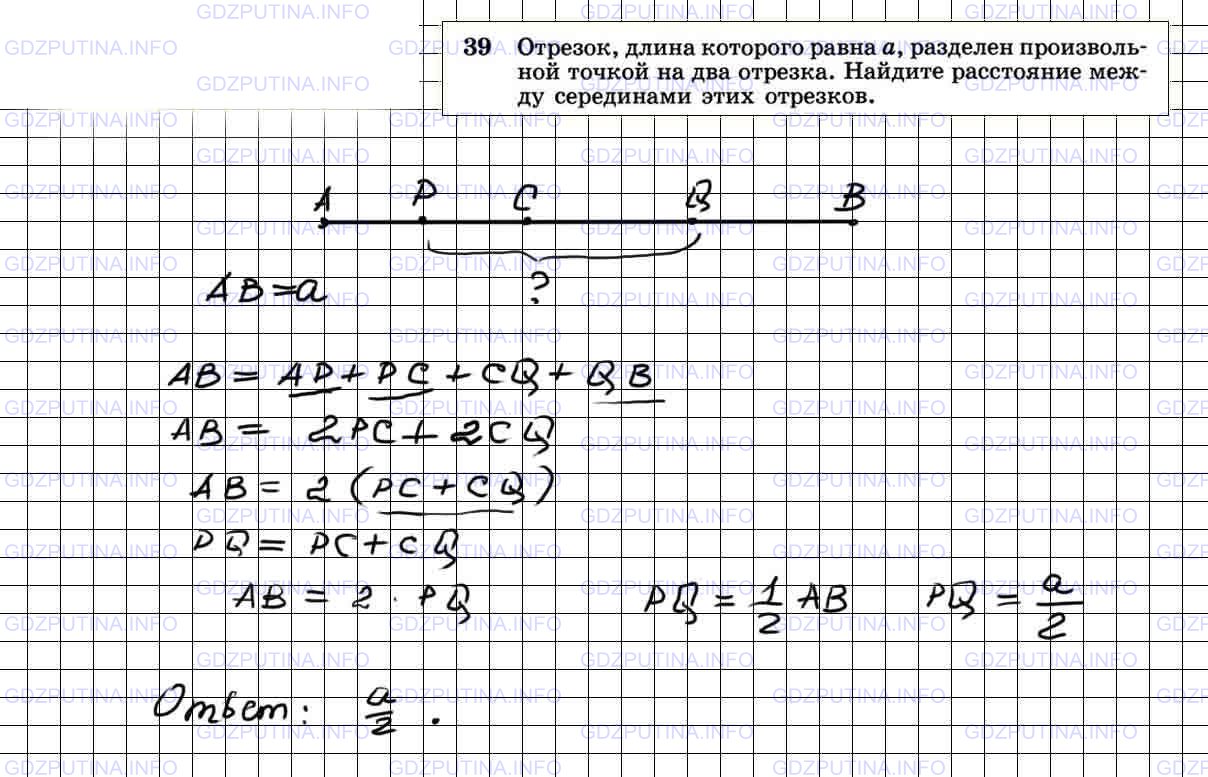 39 Отрезок, длина которого равна a, разделен произволь-
ной точкой на два отрезка. Найдите расстояние меж-
ду серединами этих отрезков.
A P C Q B
AB = a ?
AB = AP + PC + CQ + QB
AB = 2PC + 2CQ
AB = 2 (PC + CQ)
PQ = PC + CQ
AB = 2 · PQ PQ = 1/2 AB PQ = a/2
Ответ: a/2 .
GDZPUTINA.INFO